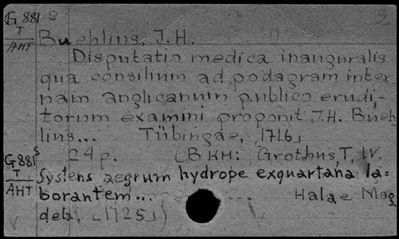 G 881 S
T
AHT
Buehlius, J. H.
Disputatio medica inauguralis
qua consilium ad podagram inter
nam anglicanum publico erudi-
torum examini proponit J. H. Bueh
lius... Tübingae, 1716,
24 p. (BKH: Grothus, T, IV.
G 881 S
T
AHT
Systens aegrum hydrope exquartana la=
borantem... ... Halae Mag
deb. [1725]